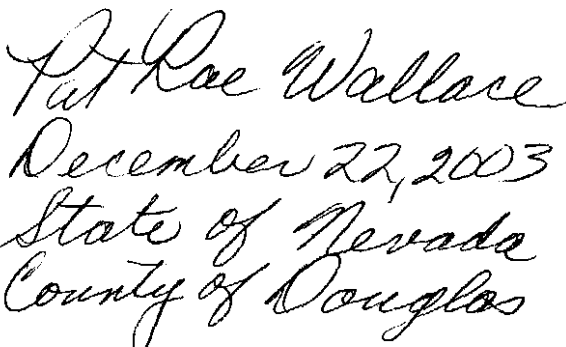 Pat Rae Wallace
December 22, 2003
State of Nevada
County of Douglas